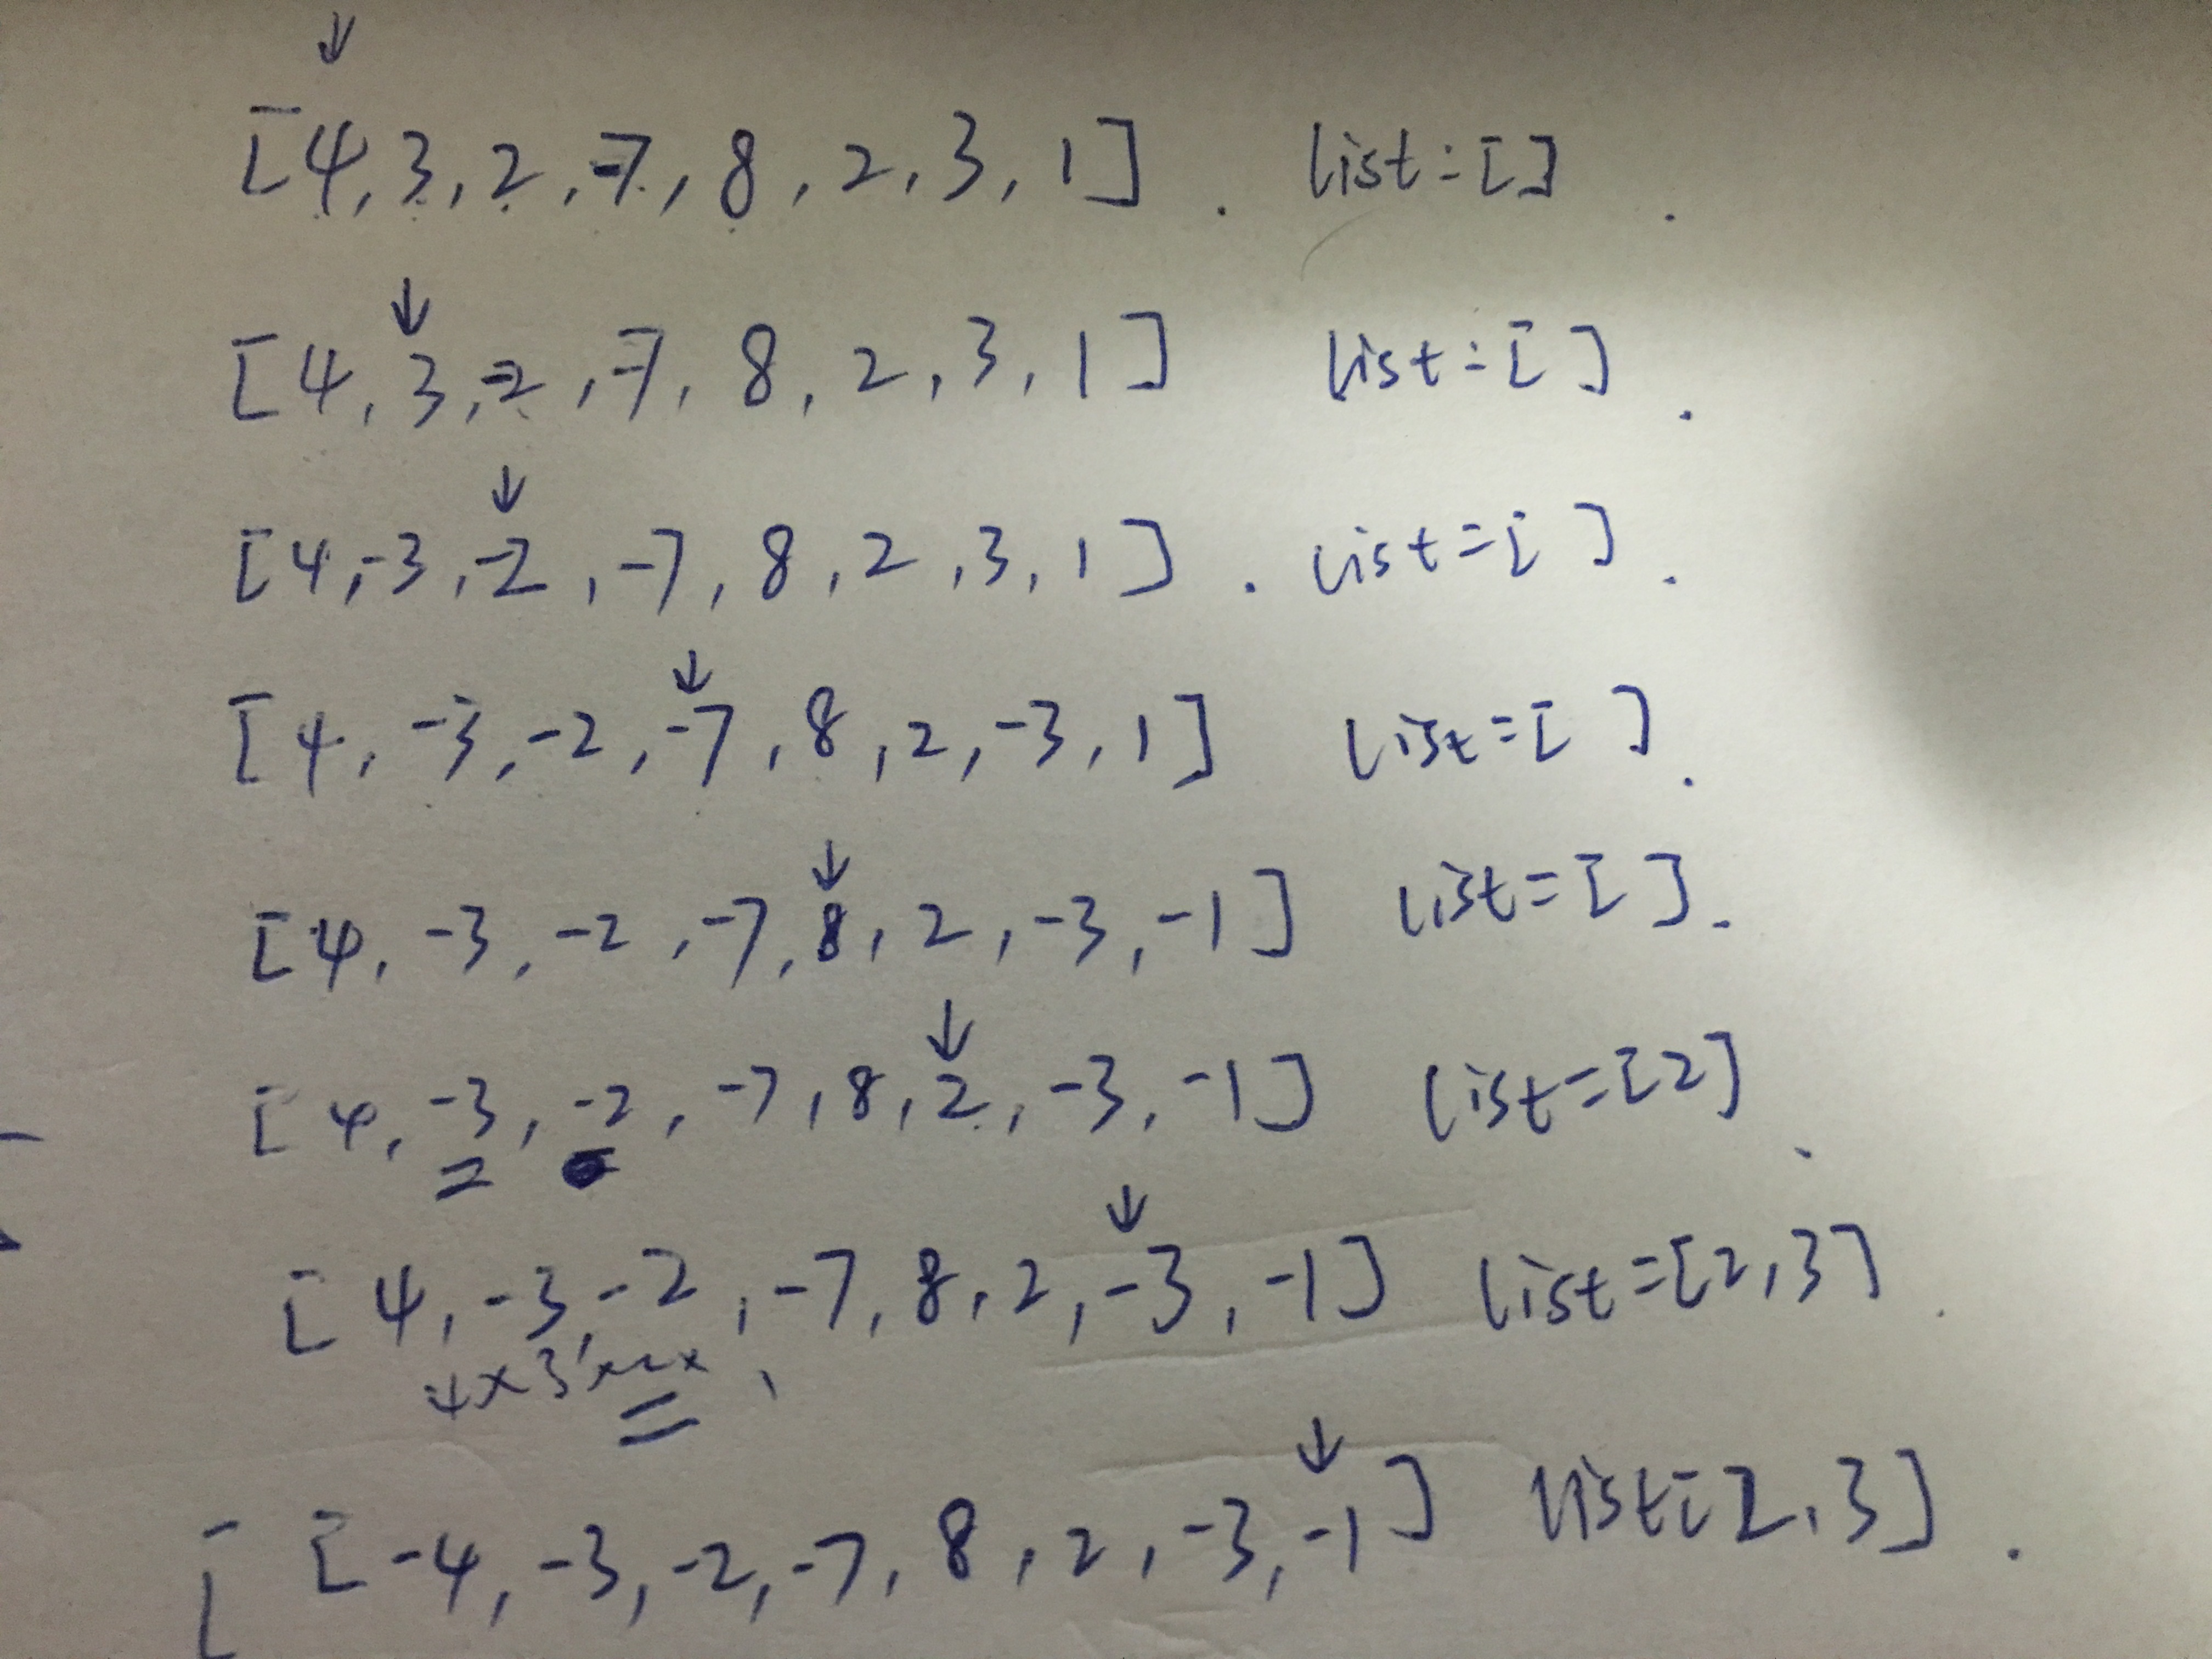 [4, 3, 2, -7, 8, 2, 3, 1]. list = [].
[4, 3, 2, -7, 8, 2, 3, 1] list = [].
[4, -3, -2, -7, 8, 2, 3, 1]. list = [].
[4, -3, -2, -7, 8, 2, -3, 1] list = [].
[4, -3, -2, -7, 8, 2, -3, -1] list = [].
[4, -3, -2, -7, 8, 2, -3, -1] list = [2].
[4, -3, -2, -7, 8, 2, -3, -1] list = [2, 3].
[-4, -3, -2, -7, 8, 2, -3, -1] list = [2, 3].